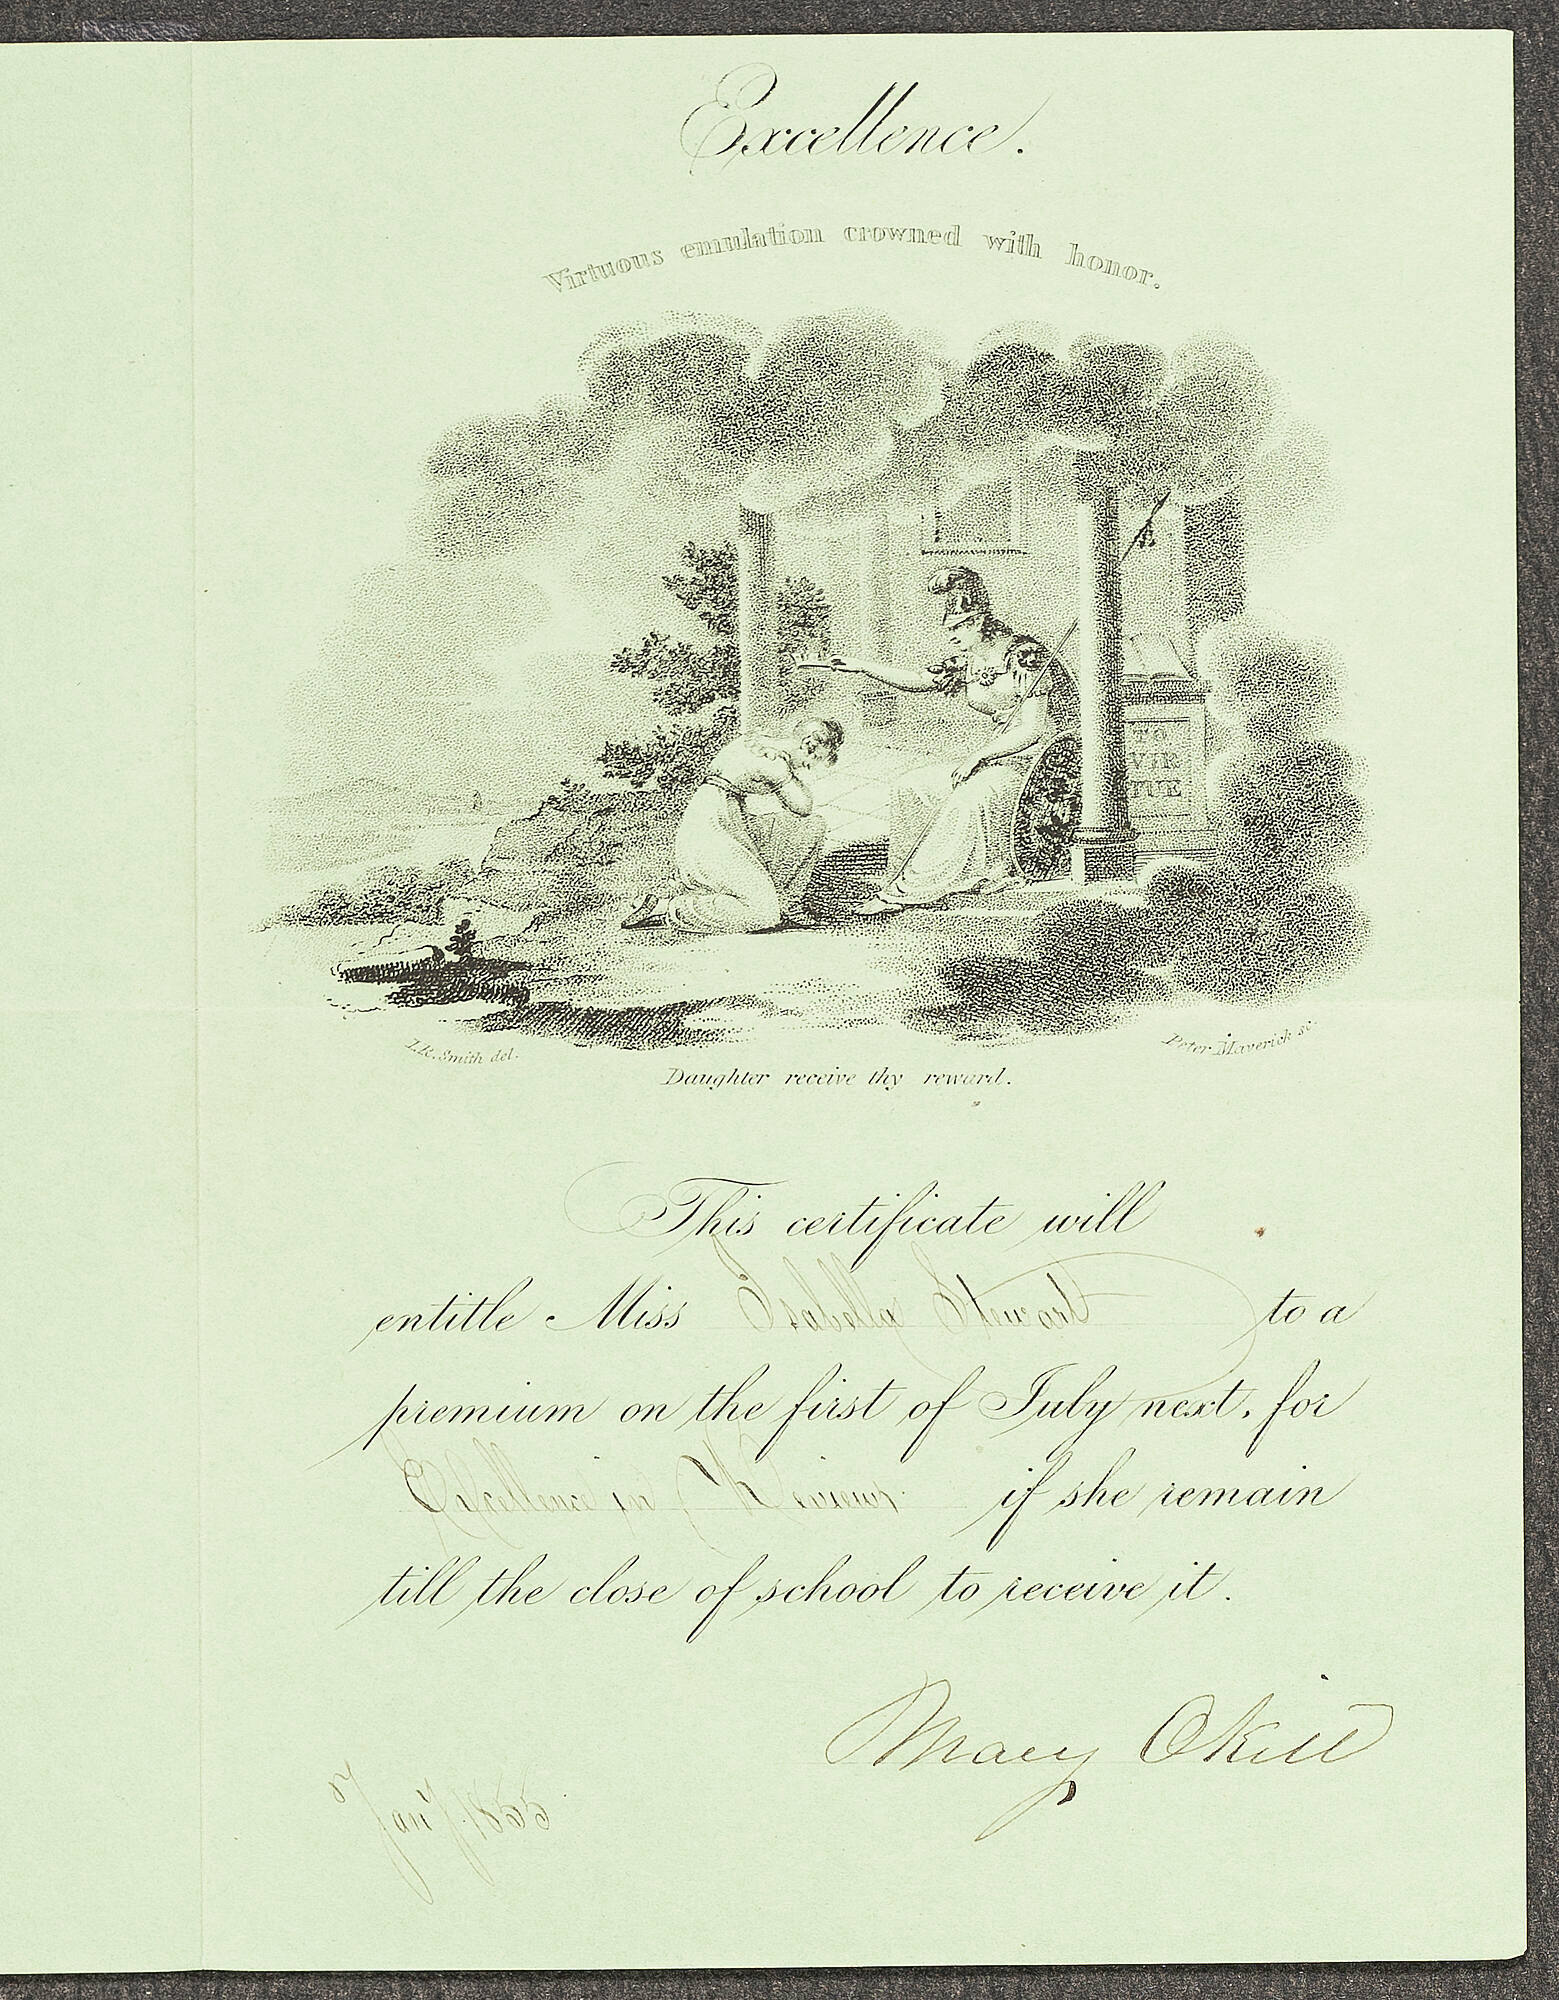 Excellence.
Virtuous emulation crowned with honor.
TO
VIR
TUE
I.R. Smith del.
Peter Maverick sc.
Daughter receive thy reward.
This certificate will
entitle Miss Isabella Stewart to a
premium on the first of July next, for
Excellence in Reviews if she remain
till the close of school to receive it.
Mary Okill
Jany. 1855